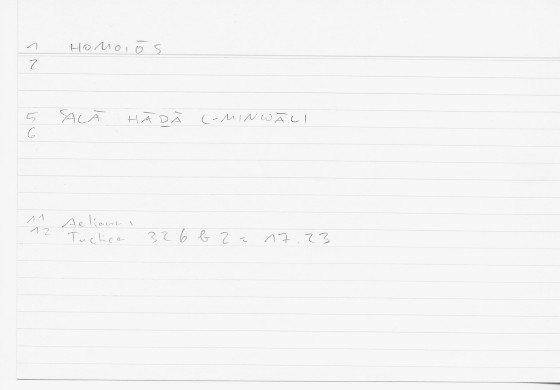 1 HOMOIŌS
2
5 ʿALĀ HĀḎĀ L-MINWĀLI
6
11 Aelianus
12 Tactica 326 b 2 = 17.23